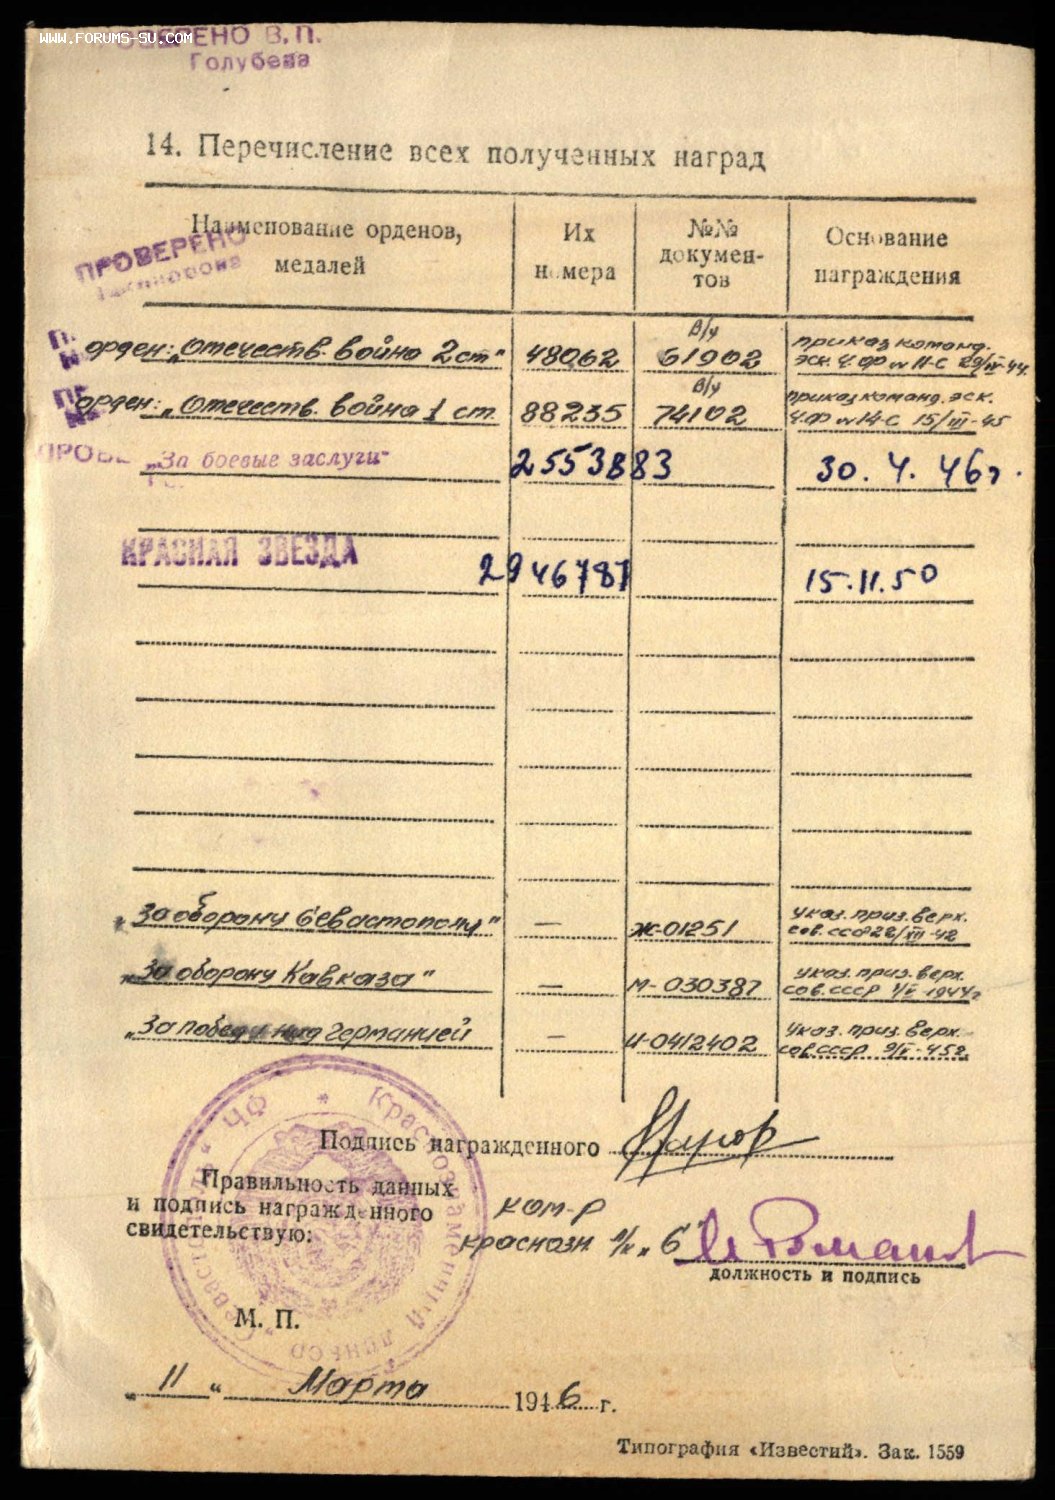 WWW.FORUMS-SU.COM
ЕРЕНО В. П.
Голубева
14. Перечисление всех полученных наград
Наименование орденов, медалей
Их номера
№№ докумен-тов
Основание награждения
ПРОВЕРЕНО
орден: „Отечеств. война 2 ст" 48062 в/у 61902 приказ команд. эск. ч.ф № 11-с 29/IV-44.
орден: „Отечеств. война 1 ст. 88235 в/у 74102 приказ команд. эск. ч.ф № 14-с 15/III-45
ПРОВЕ
„За боевые заслуги" 2553883 30. 4. 46г.
КРАСНАЯ ЗВЕЗДА 2946787 15.11.50
„За оборону Севастополя" — Ж-01251 указ. през. верх. сов. ссср 22/XII-42
„За оборону Кавказа" — М-030387 указ. през. верх. сов. ссср 1/V-1944г
„За победу над Германией — И-0412402 указ. през. верх. сов ссср 9/V-45г.
Подпись награжденного
Правильность данных
и подпись награжденного
свидетельствую:
ком-р
краснозн.
должность и подпись
М. П.
„ 11 " Марта 1946 г.
Типография «Известий». Зак. 1559